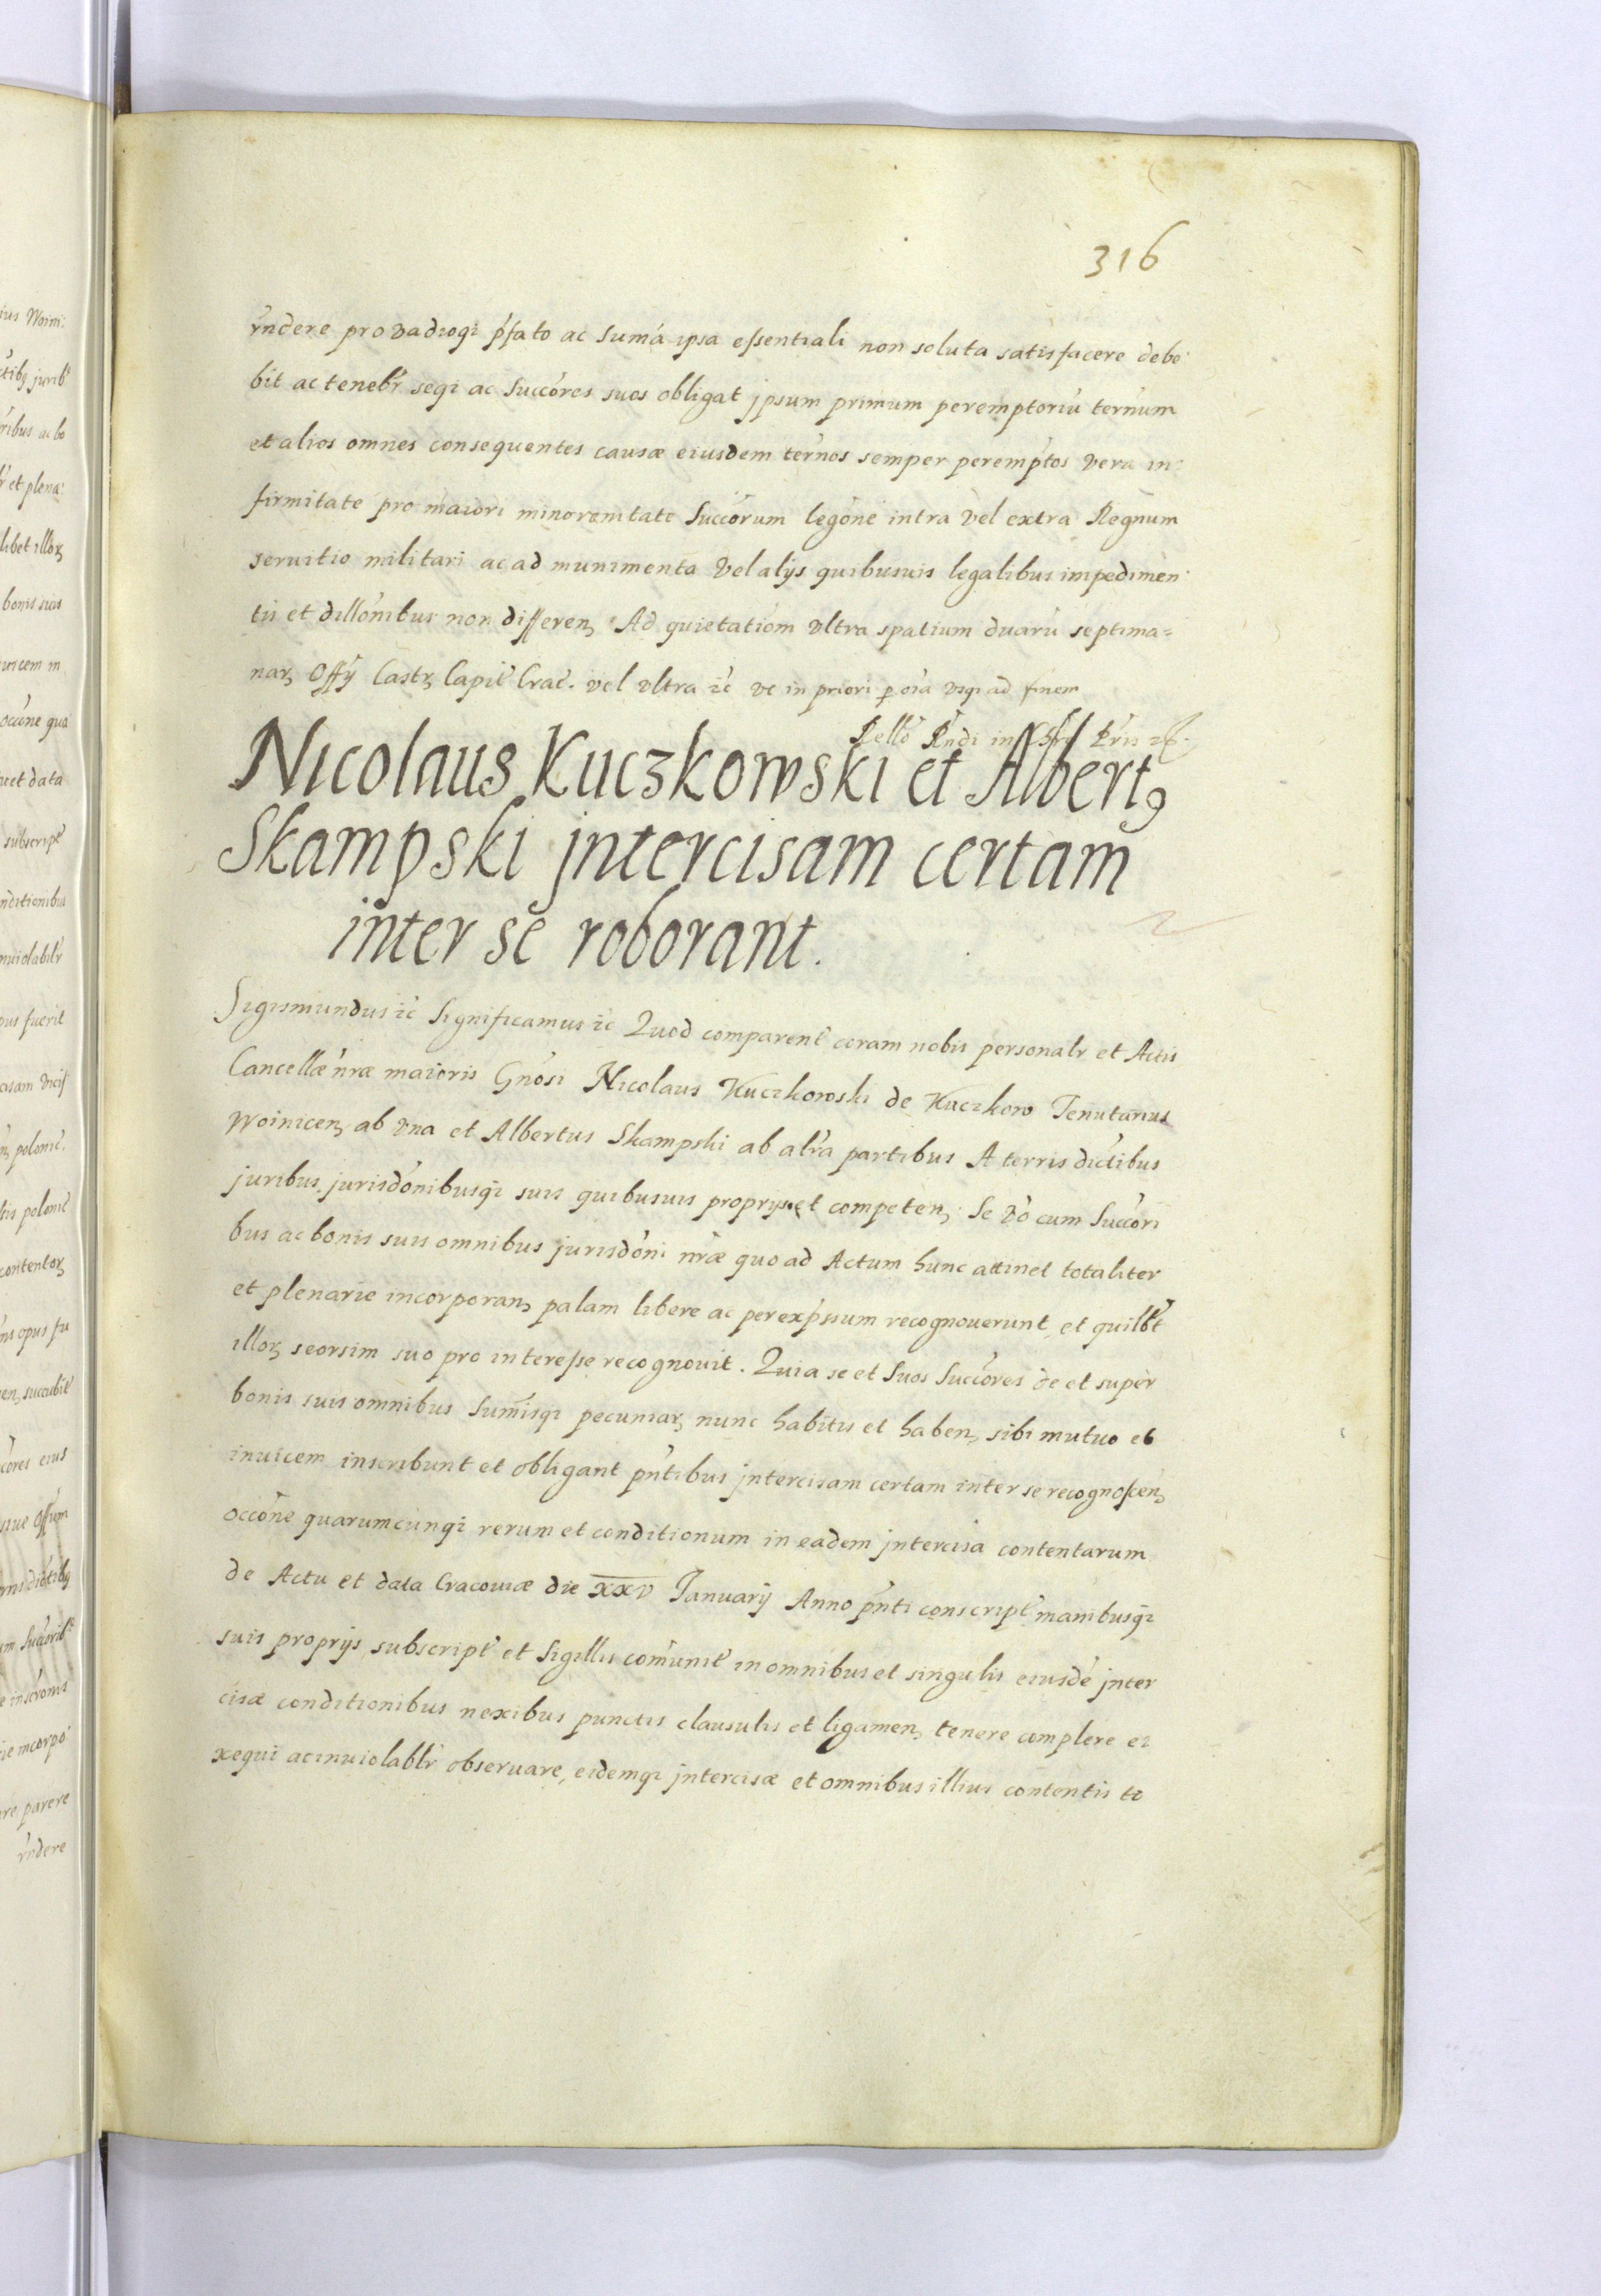 316
rndere pro vadioqz pfato ac suma ipsa essentiali non soluta satisfacere debe
bit ac tenebr seqz ac Succores suos obligat ipsum primum peremptoriu ternum
et alios omnes consequentes causæ eiusdem ternos semper peremptos vera in:
firmitate pro maiori minorenitate Succorum legone intra vel extra Regnum
seruitio militari ac ad munimenta Vel alijs quibusuis legalibus impedimen
tis et dillonibus non differen Ad quietatiom vltra spatium duaru septima=
nar Offy Castr Capit Crac. vel vltra zc vc in priori p oia vsqz ad finem
Rello Rndi in
Nicolaus Kuczkowski et Albert9
Skampski jntercisam certam
inter se roborant.
Sigismundus zc Significamus zc Quod comparent coram nobis personalr et Actis
Cancellæ nræ maioris Gnosi Nicolaus Kuczkowski de Kuczkow Tenutarius
Woinicen ab vna et Albertus Skampski ab altra partibus A terris dictibus
juribus jurisdonibusqz suis quibusuis proprijs et competen, Se vo cum Succori
bus ac bonis suis omnibus jurisdoni nræ quo ad Actum hunc attinet totaliter
et plenarie incorporan palam libere ac per expssum recognouerunt et quilbt
illor seorsim suo pro interesse recognouit. Quia se et Suos Succores de et super
bonis suis omnibus Sumisqz pecuniar nunc habitis et haben, sibi mutuo et
inuicem inscribunt et obligant pntibus jntercisam certam inter se recognoscen
occone quarumcunqz rerum et conditionum in eadem jntercisa contentarum
de Actu et data Cracouiæ die XXV Januarij Anno pnti conscript manibusqz
suis proprijs subscript et Sigillis comunit in omnibus et singulis eiusde jnter
cisæ conditionibus nexibus punctis clausulis et ligamen, tenere complere ex
xequi ac inuiolablr obseruare, eidemqz jntercisæ et omnibus illius contentis to